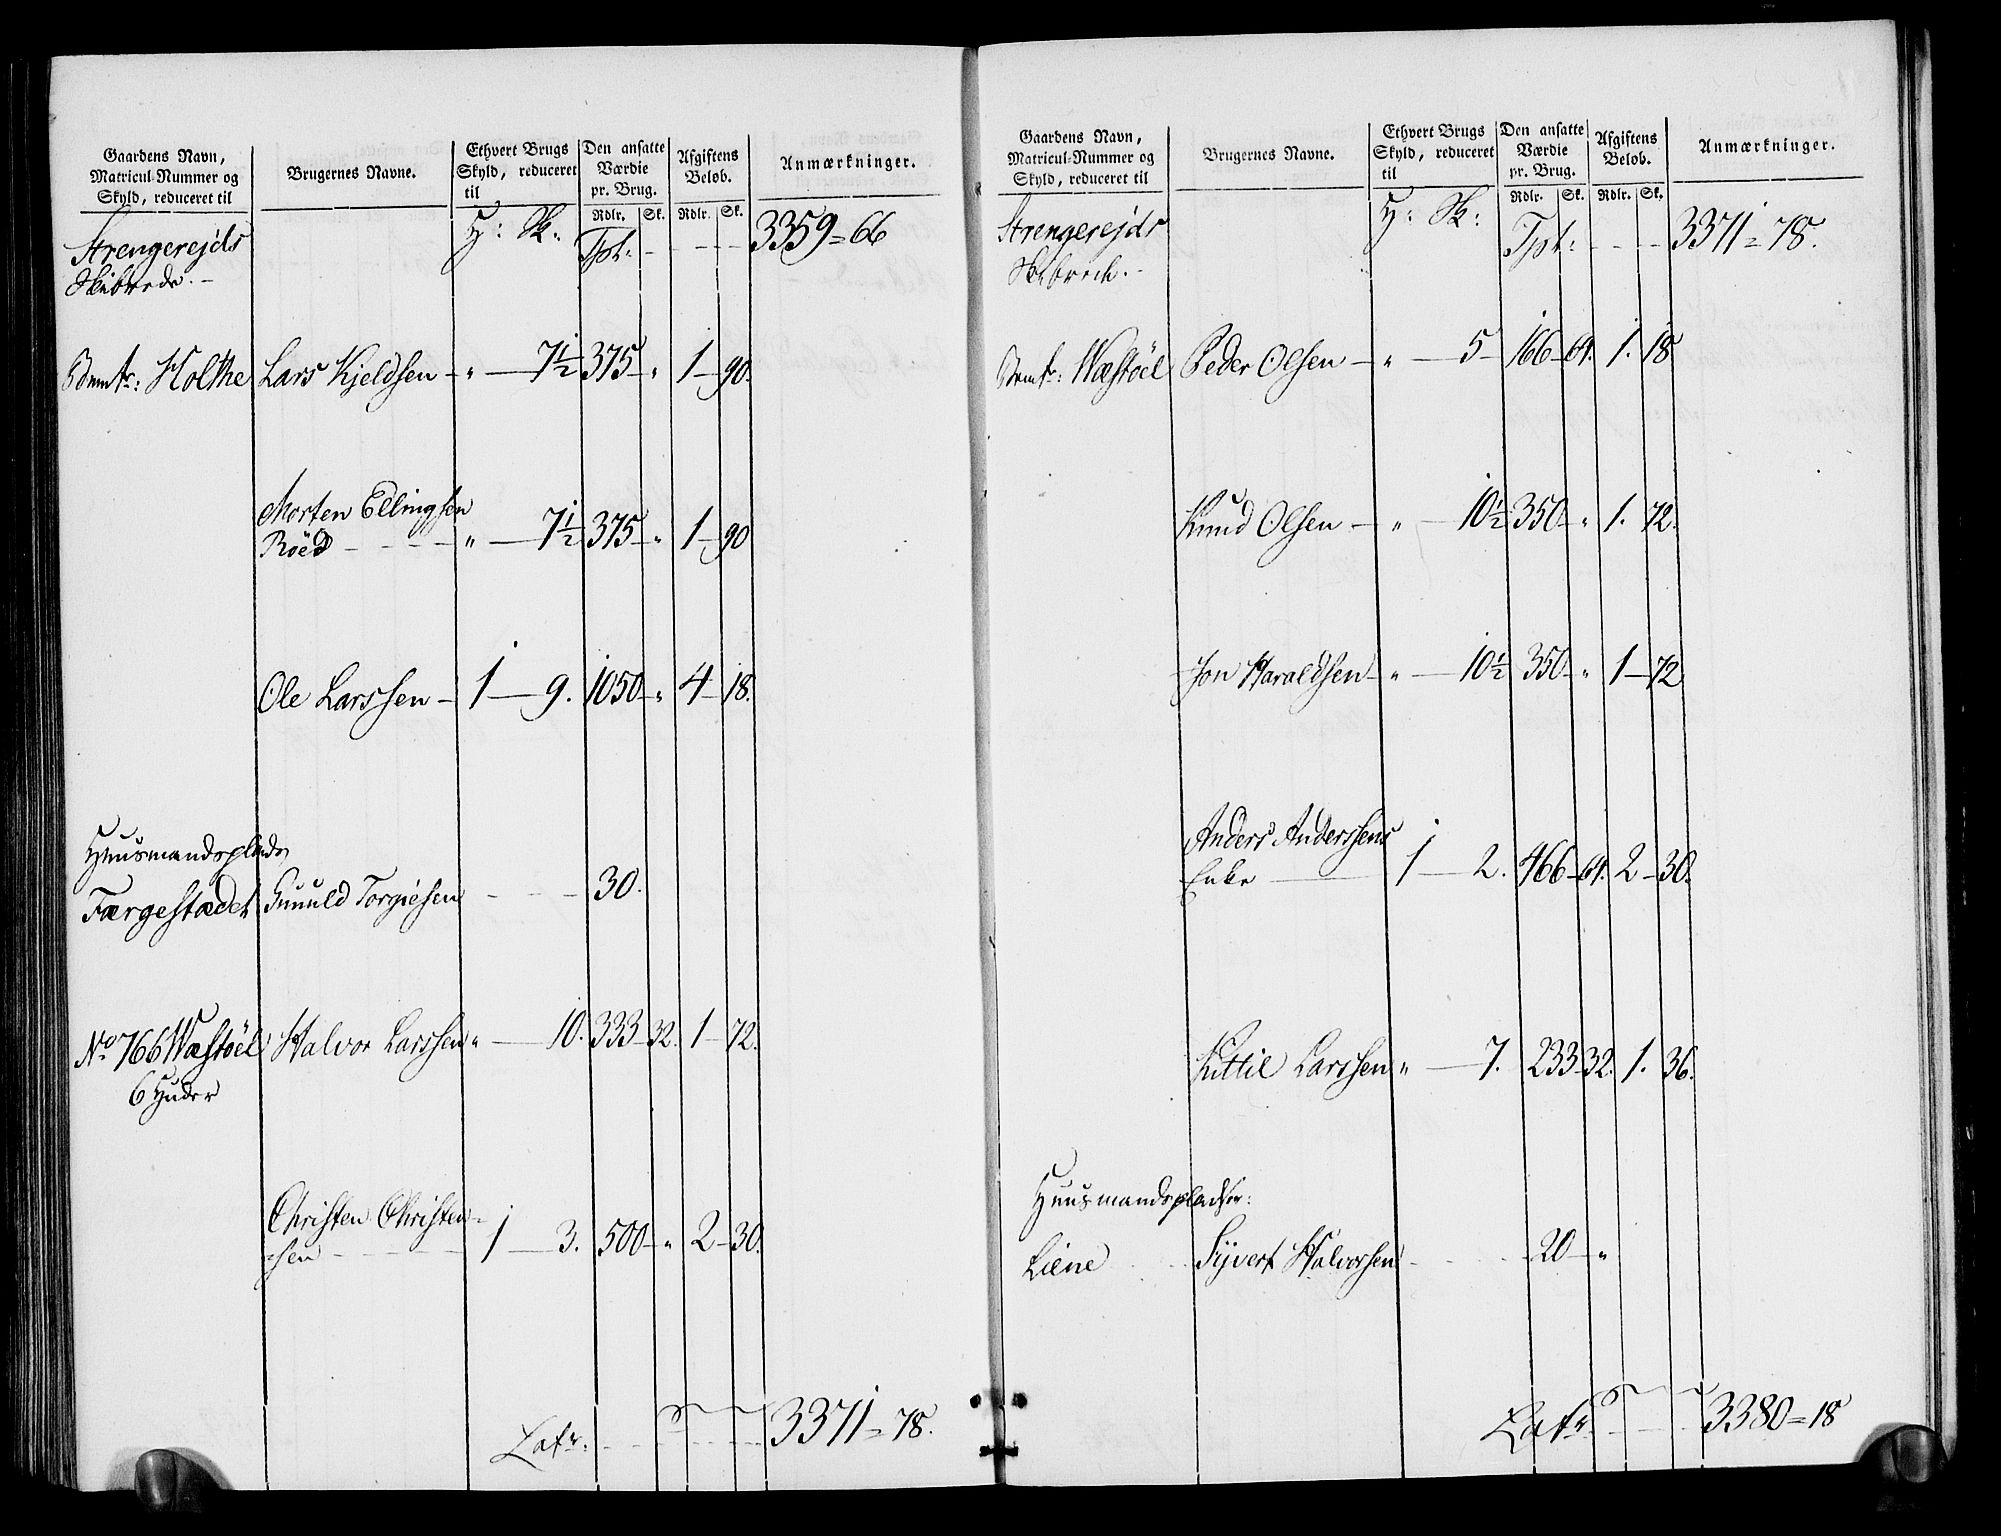 Gaardens Navn,
Matricul-Nummer og
Skyld, reduceret til
Brugernes Navne.
Ethvert Brugs
Skyld, reduceret
til
Den ansatte
Værdie
pr. Brug.
Afgiftens
Beløb.
Anmærkninger.
Rdlr. Sk. Rdlr. Sk.
Strengerejds
Skibrede.
H: Sk:
Tpt: 3359 = 66
Holthe Lars Kjeldsen „ 7½ 375 „ 1 90.
Morten Ellingsen
Röed „ 7½ 375 „ 1 90
Ole Larssen 1 9. 1050 „ 4 18.
Huusmandsplads
Færgestædet Gunuld Torgiesen 30.
No 766 Wæstöel Halvor Larssen „ 10. 333 32. 1 72.
6 Huder
Christen Christen-
sen 1 3. 500 „ 2 30.
Latr: 3371 = 78.
Gaardens Navn,
Matricul-Nummer og
Skyld, reduceret til
Brugernes Navne.
Ethvert Brugs
Skyld, reduceret
til
Den ansatte
Værdie
pr. Brug.
Afgiftens
Beløb.
Anmærkninger.
Rdlr. Sk. Rdlr. Sk.
Strengerejds
Skibrede.
H: Sk:
Tpt: 3371 = 78.
Wæstöel Peder Olsen „ 5 166 64. 1. 18
Knud Olsen „ 10½ 350 „ 1. 72.
Jon Haraldsen „ 10½ 350 „ 1 72
Anders Anderssens
Enke 1 2. 466 64. 2 30.
Kittil Larssen „ 7. 233 32. 1. 36.
Huusmandspladser:
Liene Syvert Halvorsen 20 „
Latr: 3380 = 18